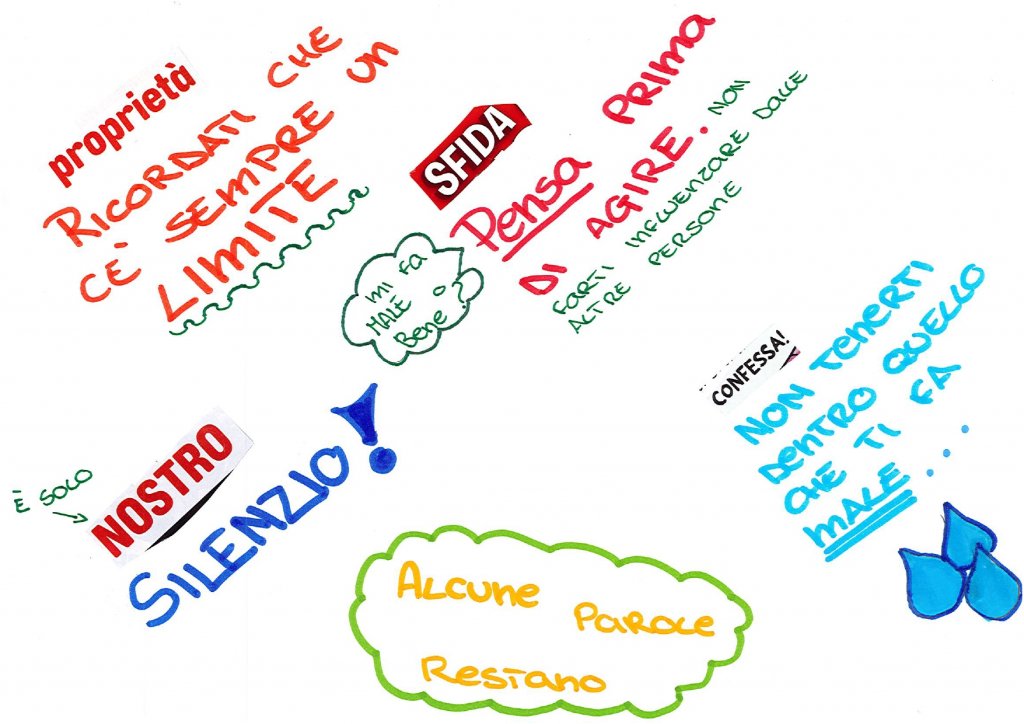 proprietà
RICORDATI CHE
C'È SEMPRE UN
LIMITE
SFIDA
PENSA PRIMA
DI AGIRE. NON
FARTI INFLUENZARE DALLE
ALTRE PERSONE
MI FA
MALE O
BENE?
CONFESSA!
NON TENERTI
DENTRO QUELLO
CHE TI FA
MALE...
È SOLO
NOSTRO
SILENZIO!
ALCUNE PAROLE
RESTANO